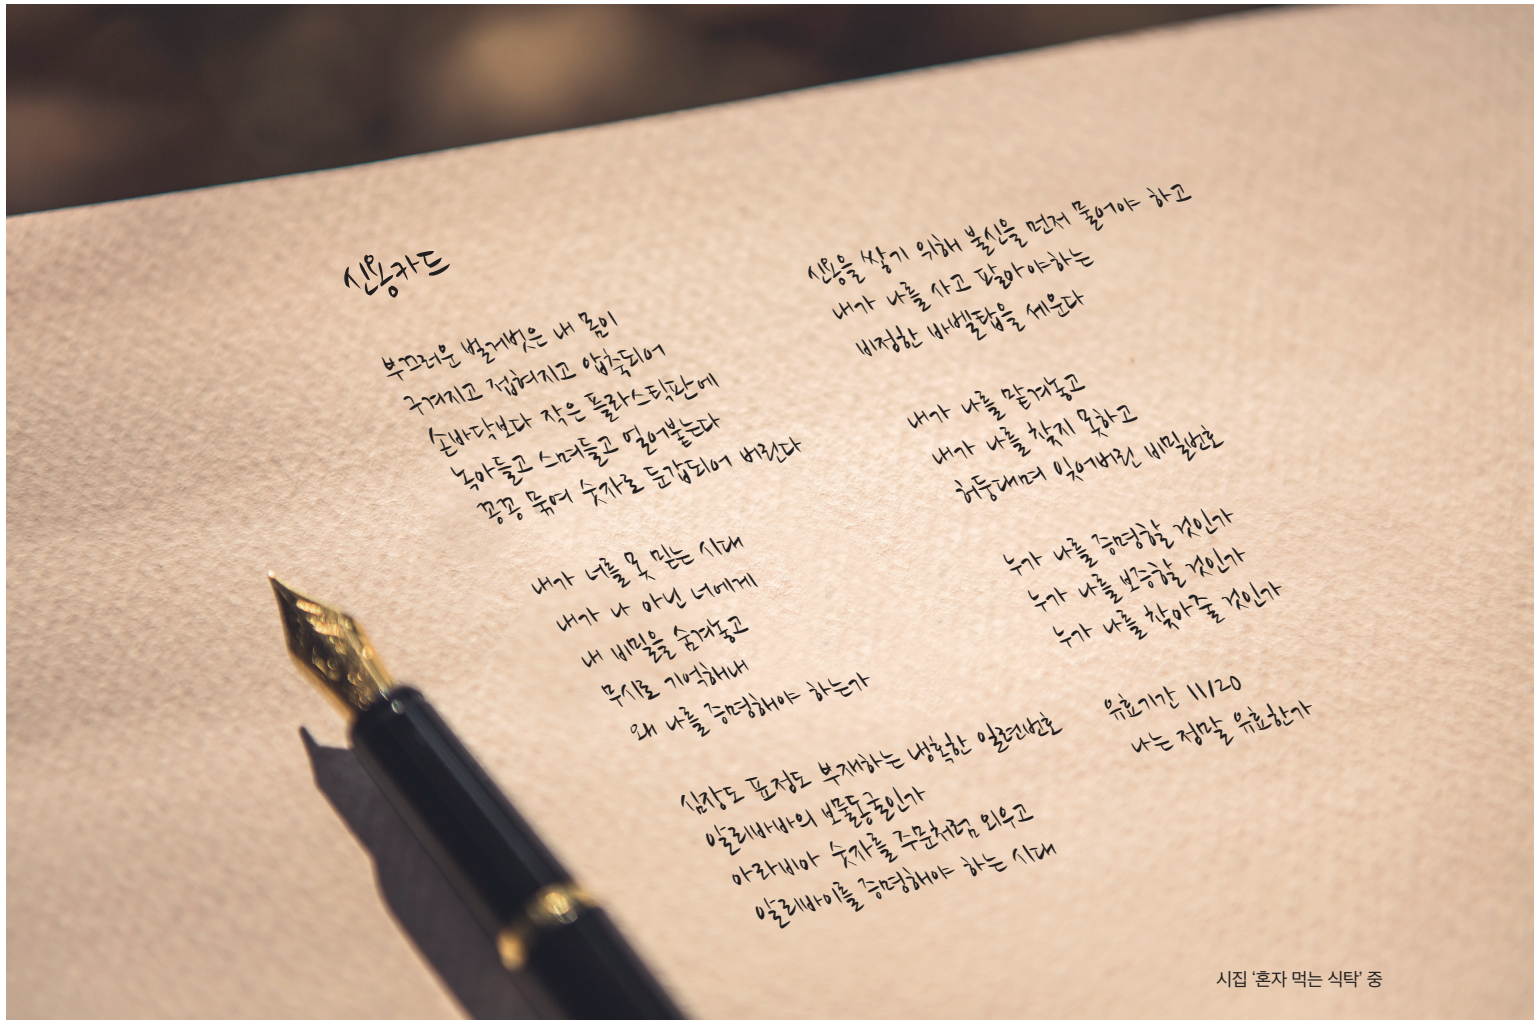 신용카드
부끄러운 벌거벗은 내 몸이
구겨지고 접혀지고 압축되어
손바닥보다 작은 플라스틱판에
녹아들고 스며들고 얼어붙는다
꽁꽁 묶여 숫자로 둔갑되어 버린다
내가 너를 못 믿는 시대
내가 나 아닌 너에게
내 비밀을 숨겨놓고
무시로 기억해내
왜 나를 증명해야 하는가
심장도 표정도 부재하는 냉혹한 일련번호
알리바바의 보물동굴인가
아라비아 숫자를 주문처럼 외우고
알리바이를 증명해야 하는 시대
신용을 쌓기 위해 불신을 먼저 물어야 하고
내가 나를 사고 팔아야하는
비정한 바벨탑을 세운다
내가 나를 맡겨놓고
내가 나를 찾지 못하고
허둥대며 잊어버린 비밀번호
누가 나를 증명할 것인가
누가 나를 보증할 것인가
누가 나를 찾아줄 것인가
유효기간 11/20
나는 정말 유효한가
시집 '혼자 먹는 식탁' 중